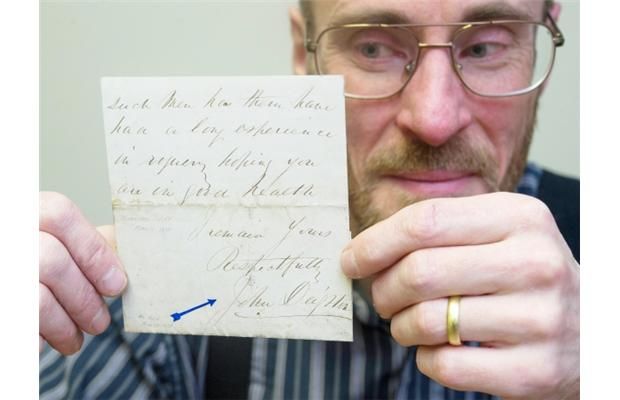 such Men has them have
had a long experience
in hoping you
are in good health
I remain Yours
Respectfully
John